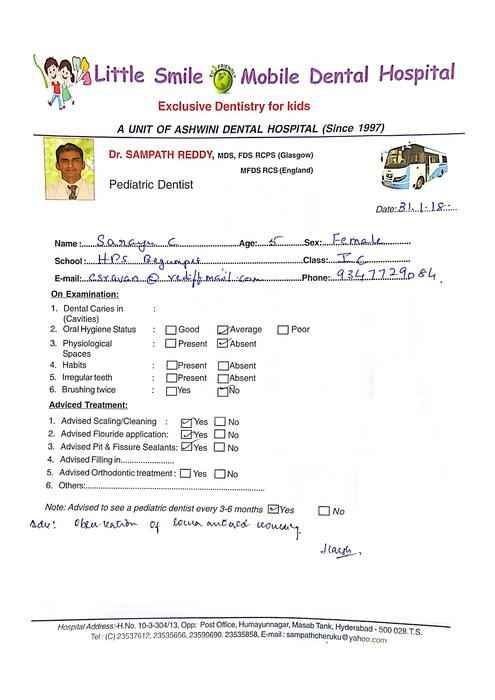 Little Smile Mobile Dental Hospital
Exclusive Dentistry for kids
A UNIT OF ASHWINI DENTAL HOSPITAL (Since 1997)
Dr. SAMPATH REDDY, MDS, FDS RCPS (Glasgow)
MFDS RCS (England)
Pediatric Dentist
Date: 31.1.18
Name: Sarayu C Age: 5 Sex: Female
School: HPS Begumpet Class: I C
E-mail: csravan@rediffmail.com Phone: 9347729084
On Examination:
1. Dental Caries in :
(Cavities)
2. Oral Hygiene Status : Good Average Poor
3. Physiological : Present Absent
Spaces
4. Habits : Present Absent
5. Irregular teeth : Present Absent
6. Brushing twice : Yes No
Adviced Treatment:
1. Advised Scaling/Cleaning : Yes No
2. Advised Flouride application: Yes No
3. Advised Pit & Fissure Sealants: Yes No
4. Advised Filling in
5. Advised Orthodontic treatment : Yes No
6. Others:
Note: Advised to see a pediatric dentist every 3-6 months Yes No
Adv: Observation of lower
Hospital Address:-H.No. 10-3-304/13, Opp: Post Office, Humayunnagar, Masab Tank, Hyderabad - 500 028.T.S.
Tel : (C) 23537612, 23535656, 23590690. 23535858, E-mail : sampathcheruku@yahoo.com